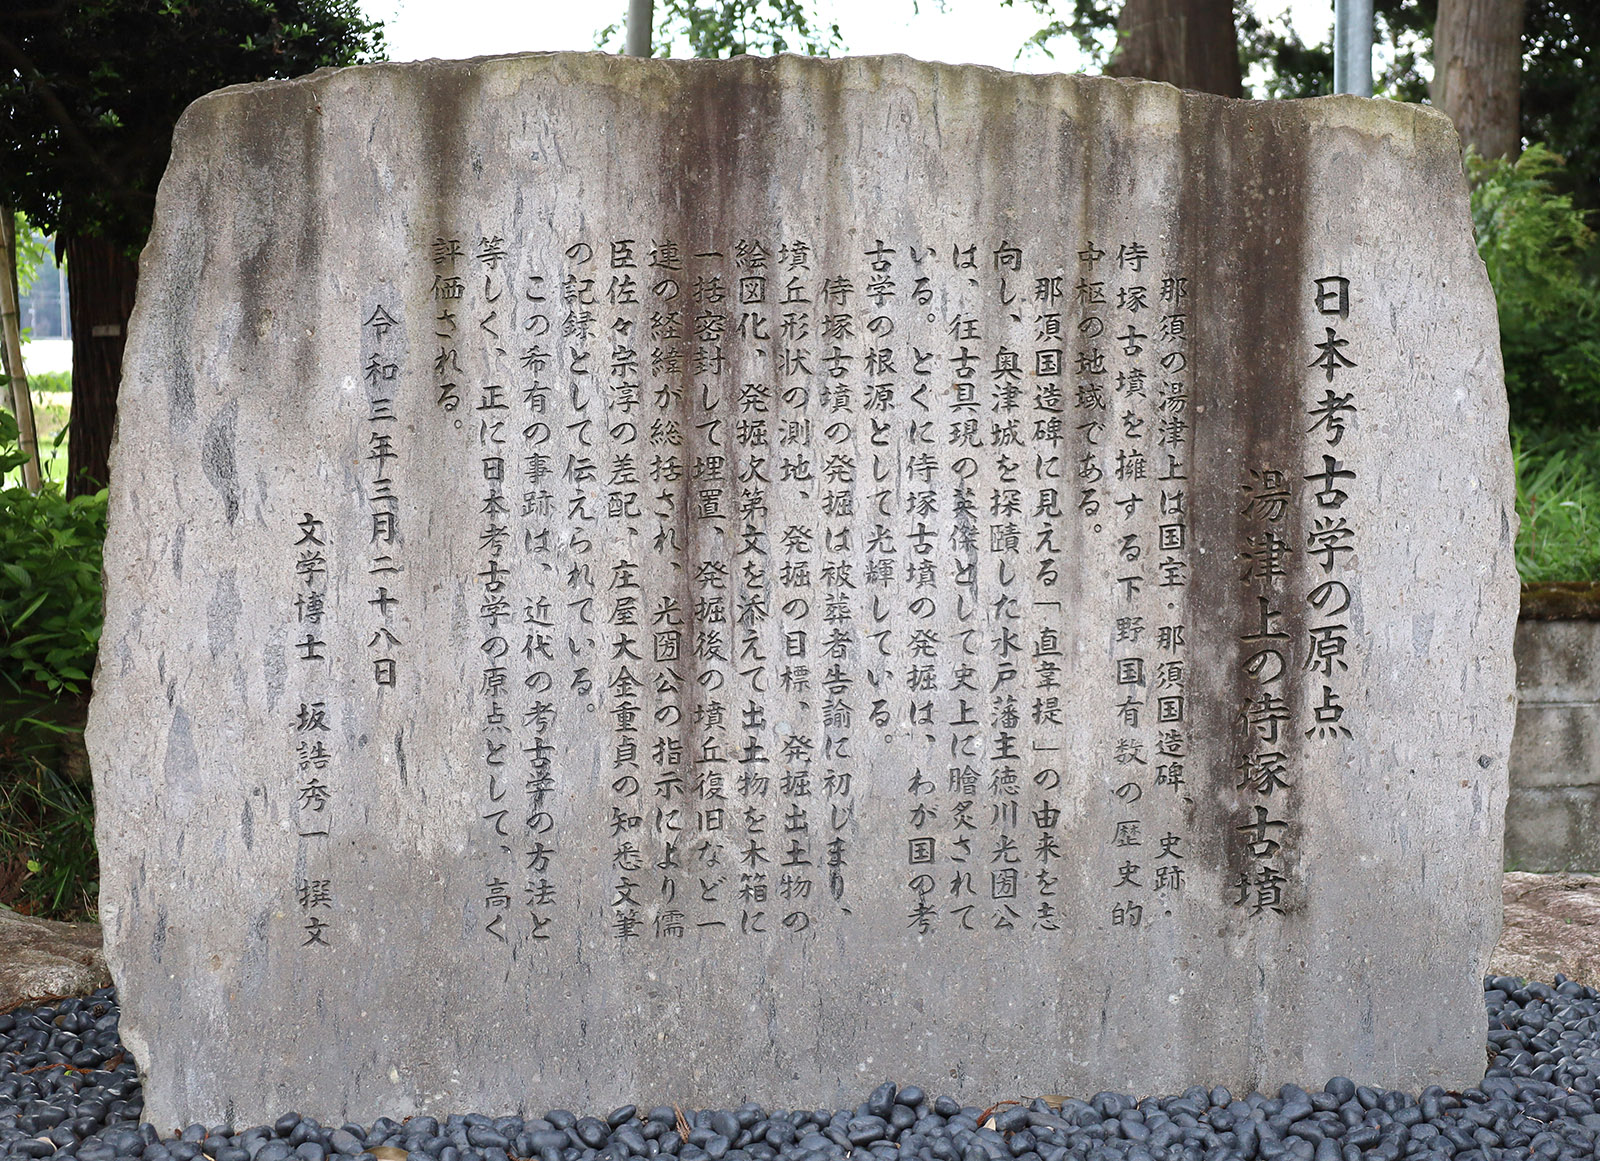 日本考古学の原点
湯津上の侍塚古墳
那須の湯津上は国宝・那須国造碑、史跡・
侍塚古墳を擁する下野国有数の歴史的
中枢の地域である。
那須国造碑に見える「直韋提」の由来を志
向し、奥津城を探賾した水戸藩主徳川光圀公
は、往古具現の英傑として史上に膾炙されて
いる。とくに侍塚古墳の発掘は、わが国の考
古学の根源として光輝している。
侍塚古墳の発掘は被葬者告諭に初しまり、
墳丘形状の測地、発掘の目標、発掘出土物の
絵図化、発掘次第文を添えて出土物を木箱に
一括密封して埋置、発掘後の墳丘復旧など一
連の経緯が総括され、光圀公の指示により儒
臣佐々宗淳の差配、庄屋大金重貞の知悉文筆
の記録として伝えられている。
この希有の事跡は、近代の考古学の方法と
等しく、正に日本考古学の原点として、高く
評価される。
令和三年三月二十八日
文学博士 坂誥秀一 撰文